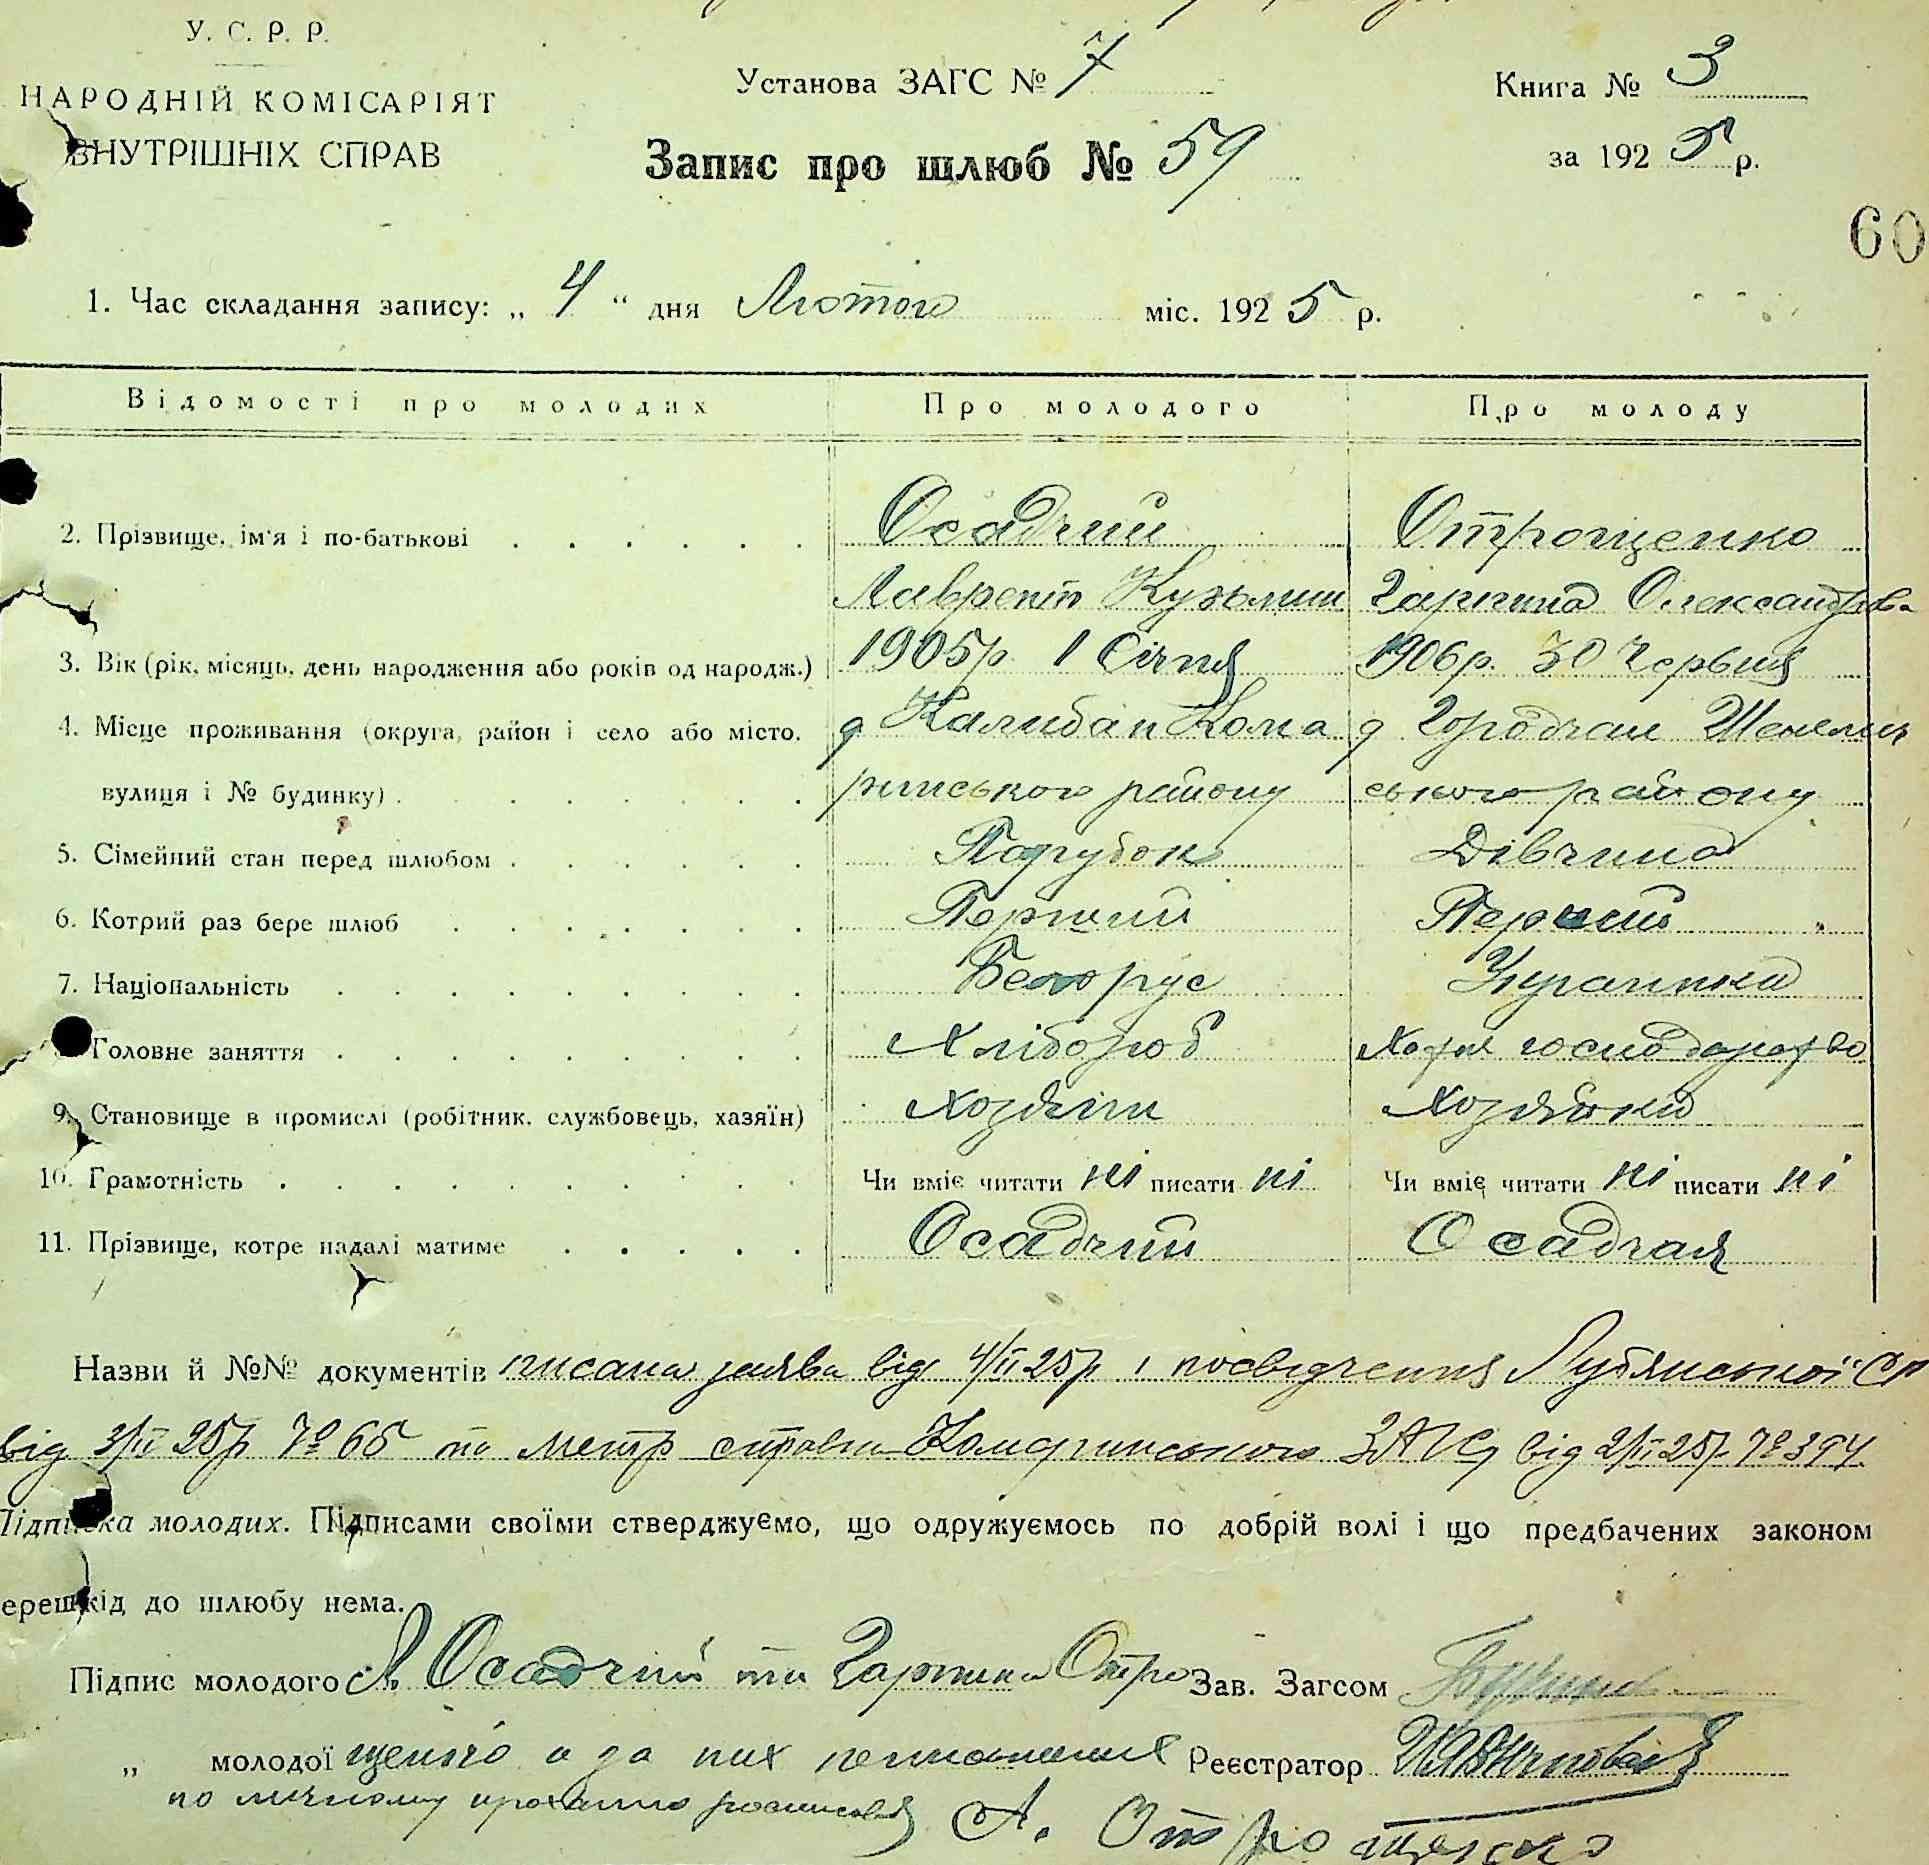 У. С. Р. Р.
НАРОДНІЙ КОМІСАРІЯТ
ВНУТРІШНІХ СПРАВ
Установа ЗАГС № 7
Запис про шлюб № 59
Книга № 3
за 1925 р.
60
1. Час складання запису: „ 4 “ дня Лютого міс. 1925 р.
Відомості про молодих Про молодого Про молоду
2. Прізвище, ім'я і по-батькові Осадчий Отрощенко
Лаврентій Кузьмич Гарпина Олександрів.
3. Вік (рік, місяць, день народження або років од народж.) 1905р. 1 Січня 1906р. 30 Червня
4. Місце проживання (округа, район і село або місто, д Калибан Кома д Городчан Шепелич
вулиця і № будинку) ринського району ського району
5. Сімейний стан перед шлюбом Парубок Дівчина
6. Котрий раз бере шлюб Перший Перший
7. Національність Белорус Українка
Головне заняття Хлібороб Хатнє господарство
9. Становище в промислі (робітник, службовець, хазяїн) Хозяїн Хозяйка
10. Грамотність Чи вміє читати ні писати ні Чи вміє читати ні писати ні
11. Прізвище, котре надалі матиме Осадчий Осадчая
Назви й №№ документів писана заява від 4/II 25р і посвідчення Лубянської СР
від 3/II 25р № 66 та метр справка Комаринського ЗАГСу від 2/II 25р № 394
Підписка молодих. Підписами своїми стверджуємо, що одружуємось по добрій волі і що предбачених законом
ерешкід до шлюбу нема.
Підпис молодого Л. Осадчий та Гарпина Отро Зав. Загсом
„ молодої щенко а за них неписьменних Реєстратор
по личному проханню росписався А. Отрощенко